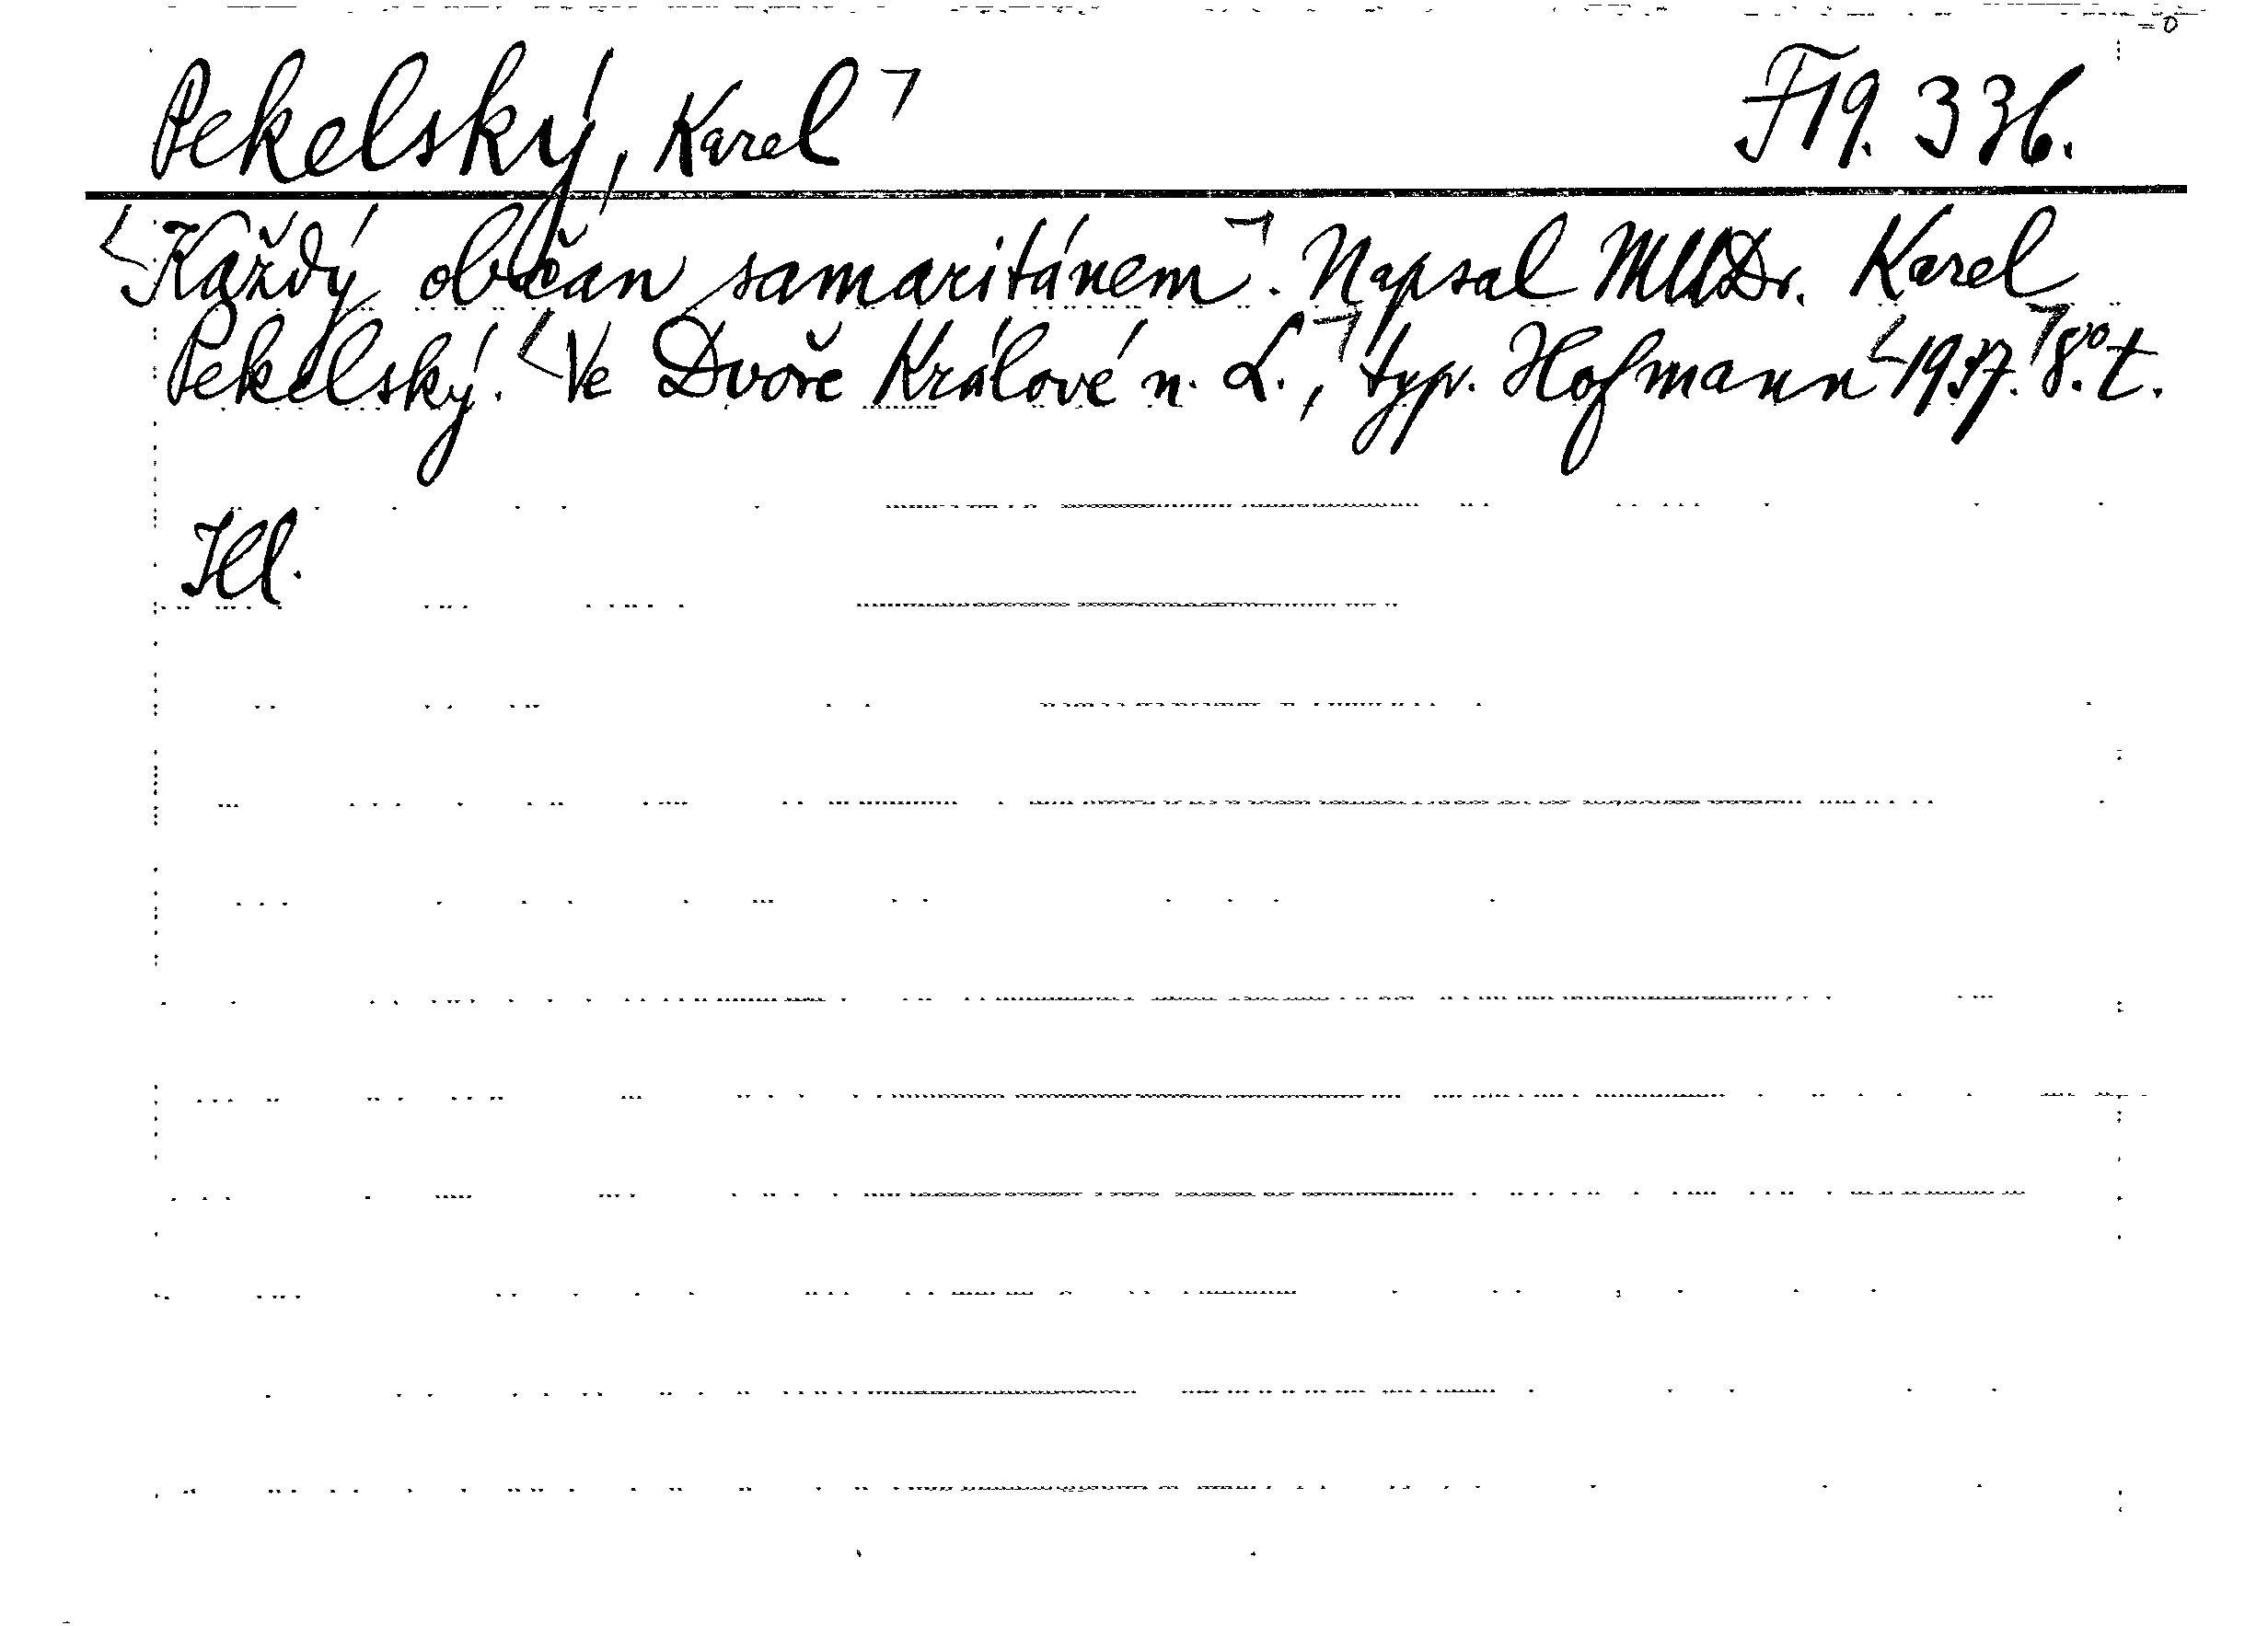 Pekelský, Karel
F19.336.
Každý občan samaritánem. Napsal MUDr. Karel
Pekelský. Ve Dvoře Králové n. L., typ. Hofmann 1937. 8°. t.
Ill.